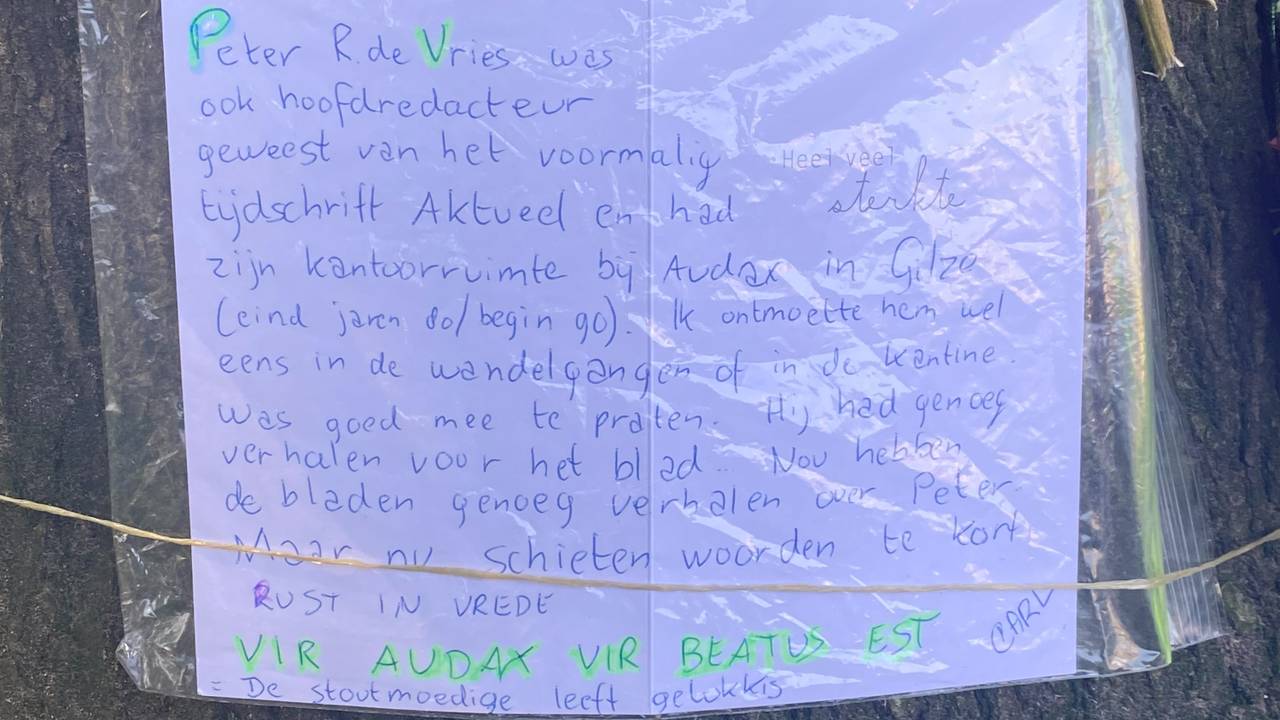 Peter R. de Vries was
ook hoofdredacteur
geweest van het voormalig
Heel veel
sterkte
tijdschrift Aktueel en had
zijn kantoorruimte bij Audax in Gilze
(eind jaren 80/begin 90). Ik ontmoette hem wel
eens in de wandelgangen of in de kantine.
Was goed mee te praten. Hij had genoeg
verhalen voor het blad.. Nou hebben
de bladen genoeg verhalen over Peter.
Maar nu schieten woorden te kort
RUST IN VREDE
CARL
VIR AUDAX VIR BEATUS EST
= De stoutmoedige leeft gelukkig